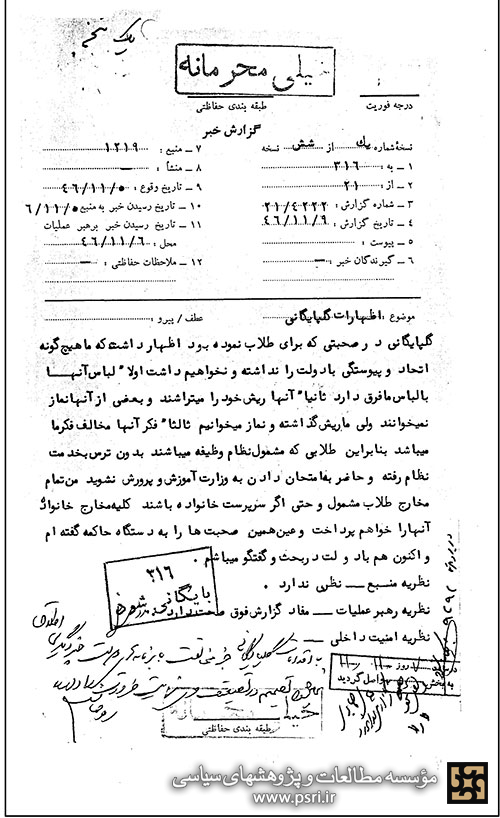 خیلی محرمانه
درجه فوریت
طبقه بندی حفاظتی
گزارش خبر
نسخه شماره یک از شش نسخه
۱ – به : ۳۱۶
۲ – از : ۲۱
۳ – شماره گزارش : ۲۱/۴۲۲۲
۴ – تاریخ گزارش : ۴۶/۱۱/۹
۵ – پیوست :
۶ – گیرندگان خبر : –
۷ – منبع : ۱۲۱۹
۸ – منشأ : –
۹ – تاریخ وقوع : ۴۶/۱۱/۵
۱۰ – تاریخ رسیدن خبر به منبع ۶/۱۱/۵
۱۱ – تاریخ رسیدن خبر برهبر عملیات
محل : ۴۶/۱۱/۶
۱۲ – ملاحظات حفاظتی : –
موضوع : اظهارات گلپایگانی
عطف / پیرو :
گلپایگانی در صحبتی که برای طلاب نموده بود اظهار داشت که ما هیچ گونه
اتحاد و پیوستگی با دولت را نداشته و نخواهیم داشت اولا" لباس آنها
با لباس ما فرق دارد ثانیا" آنها ریش خود را میتراشند و بعضی از آنها نماز
نمیخوانند ولی ما ریش گذاشته و نماز میخوانیم ثالثا" فکر آنها مخالف فکر ما
میباشد بنابراین طلابی که مشمول نظام وظیفه میباشند بدون ترس بخدمت
نظام رفته و حاضر به امتحان دادن به وزارت آموزش و پرورش نشوید من تمام
مخارج طلاب مشمول و حتی اگر سرپرست خانواده باشند کلیه مخارج خانواده
آنها را خواهم پرداخت و عین همین صحبت ها را به دستگاه حاکمه گفته ام
و اکنون هم با دولت در بحث و گفتگو میباشم .
نظریه منبع – نظری ندارد .
نظریه رهبر عملیات – مفاد گزارش فوق صحت دارد
نظریه امنیت داخلی –
۳۱۶
بایگانی
طبقه بندی حفاظتی
مؤسسه مطالعات و پژوهشهای سیاسی
www.psri.ir